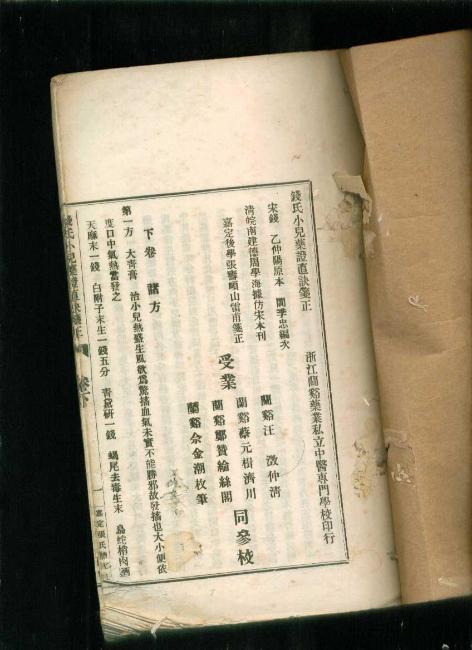 錢氏小兒藥證直訣箋正
浙江蘭谿藥業私立中醫專門學校印行
宋錢 乙仲陽原本 閻季忠編次
清皖南建德周學海據仿宋本刊
嘉定後學張壽頤山雷甫箋正
受業
蘭谿汪 仲清
蘭谿蔡元樹濟川
蘭谿鄭贊綸絲閣
蘭谿佘金潮枚筆
同參校
下卷 諸方
第一方 大青膏 治小兒熱盛生風欲爲驚搐血氣未實不能勝邪故發搐也大小便依
度口中氣熱當發之
天麻末一錢 白附子末生一錢五分 青黛研一錢 蝎尾去毒生末 烏蛇梢肉酒
錢氏小兒藥證直訣箋正 卷下
嘉定張氏